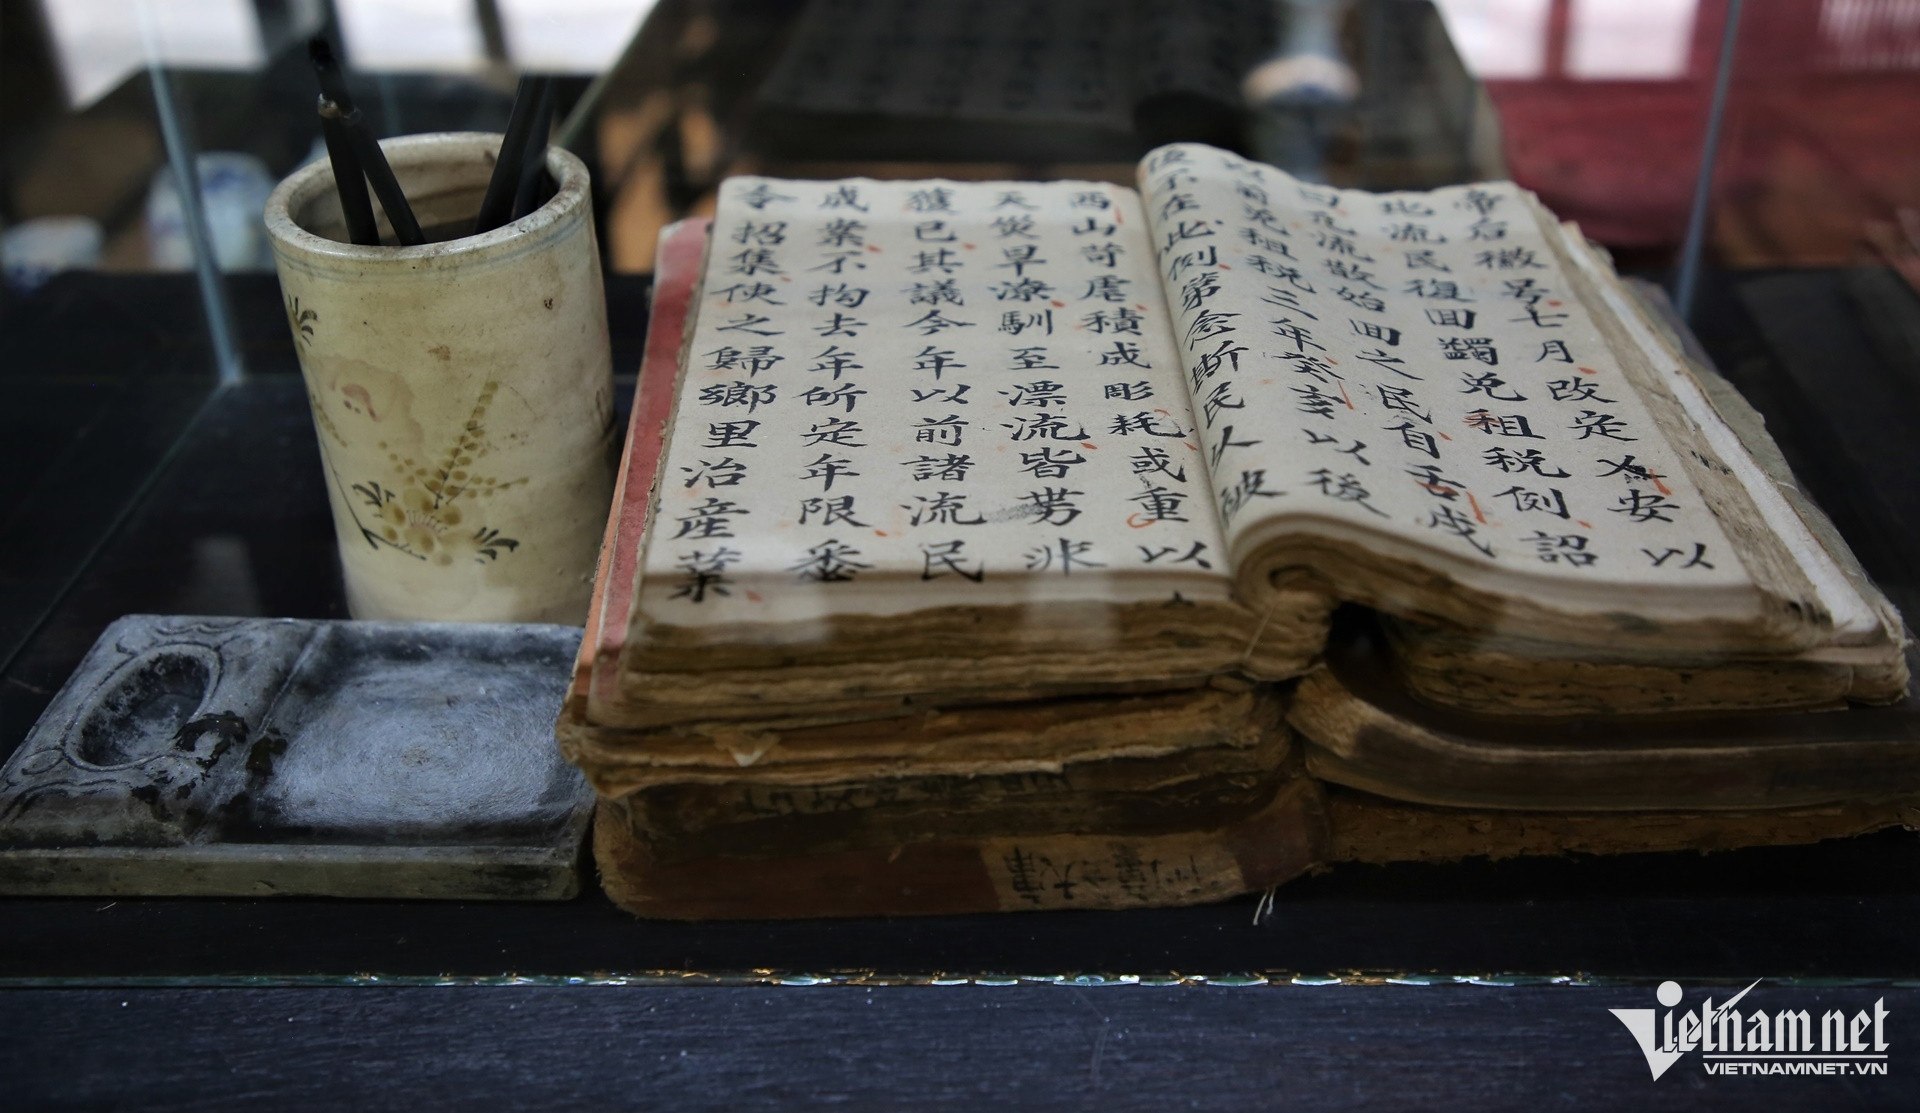 帝后徽号七月改定為安以
北流民復回蠲免租税例詔
曰凡流散始回之民自戌
以前免租税三年癸亥以後
後不在此例第念斯民人被
西山苛虐積成彫耗或重以
天災旱潦馴至漂流皆非
獲已其議今年以前諸流民
成案不拘去年所定年限悉
令招集使之歸鄉里治産業
Vietnamnet
VIETNAMNET.VN